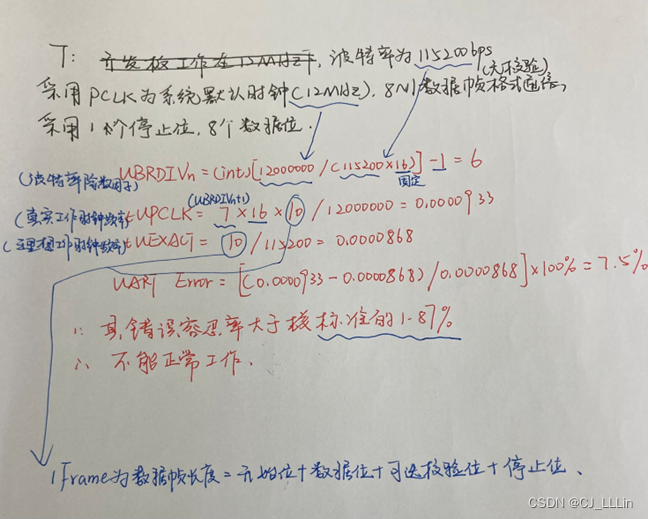 T: 开发板工作在12MHz下,波特率为115200bps
(无校验)
采用PCLK为系统默认时钟(12MHz),8N1数据帧格式通信,
采用1个停止位,8个数据位.
(波特率除数因子) UBRDIVn = (int)[12000000/(115200×16)] -1 = 6
固定
(UBRDIVn+1)
(真实工作时钟频率) tUPCLK = 7 × 16 × 10 / 12000000 = 0.0000933
(理想工作时钟频率) tUEXACT = 10 / 115200 = 0.0000868
UART Error = [(0.0000933-0.0000868)/0.0000868]×100% = 7.5%
∵ 其错误容忍率大于标准的1.87%
∴ 不能正常工作.
1Frame为数据帧长度=开始位+数据位+可选校验位+停止位、
CSDN @CJ_LLLin